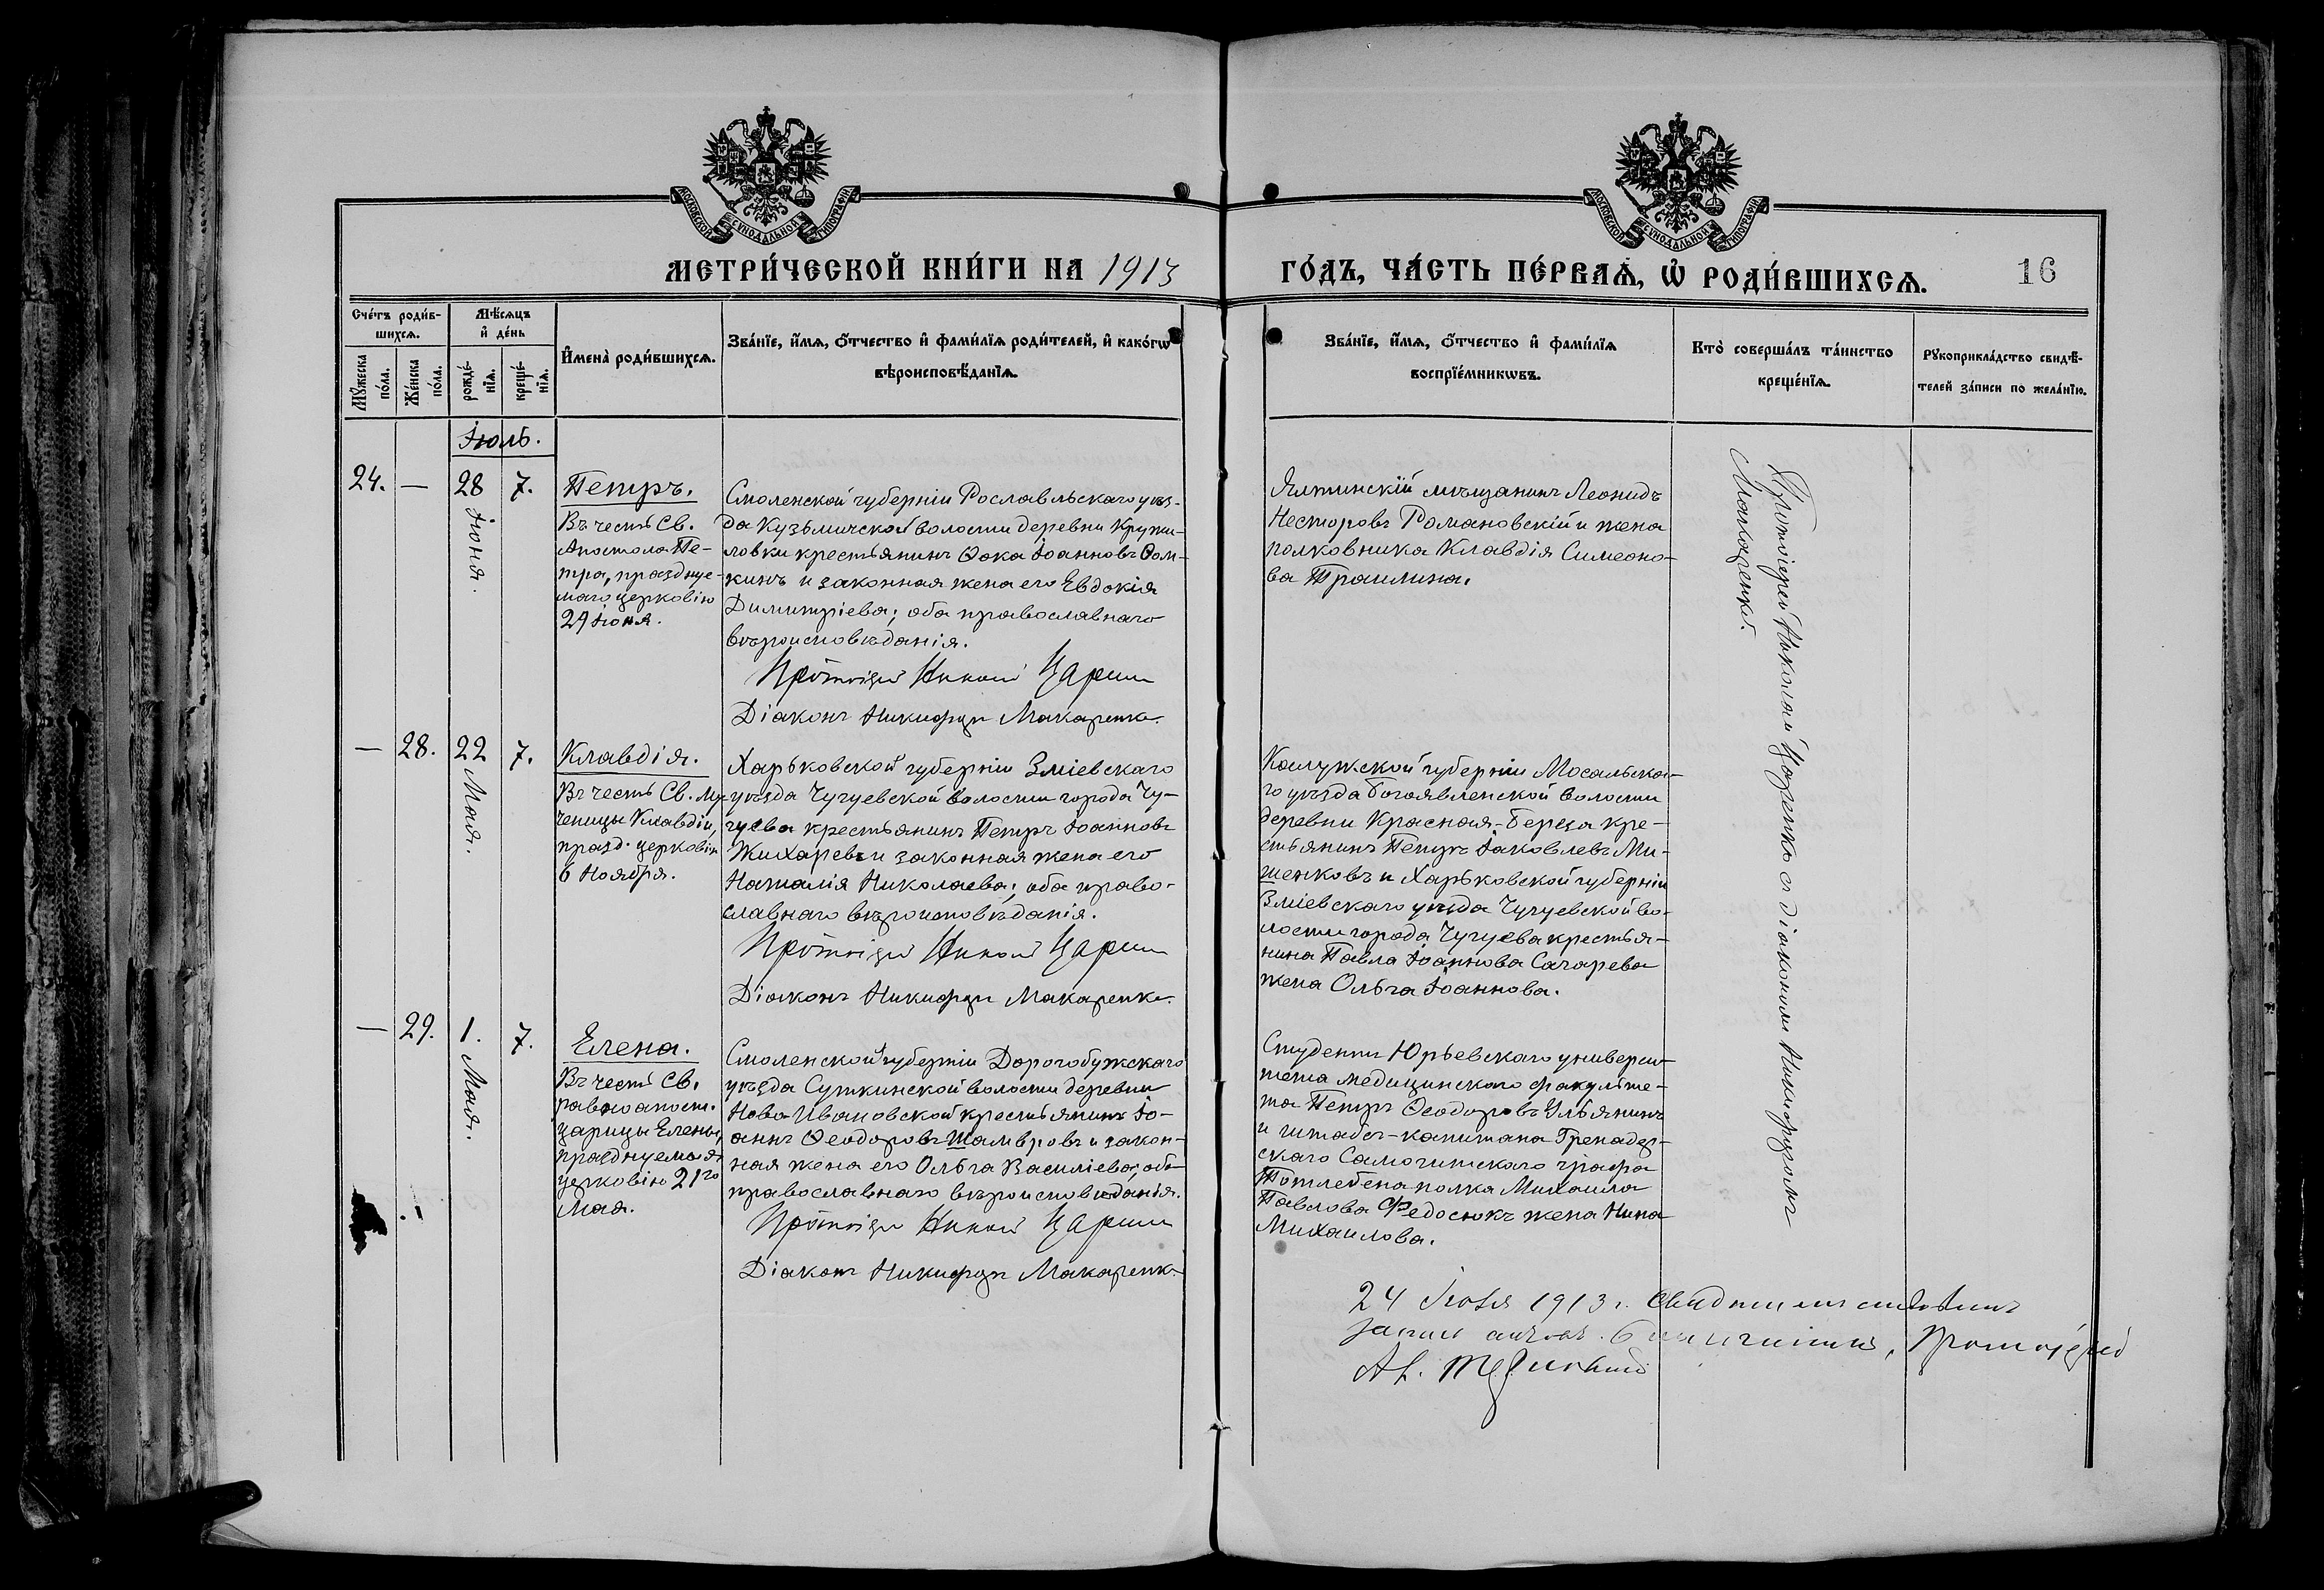 МОСКОВСКОЙ СУНОДАЛЬНОЙ ТИПОГРАФІИ
МОСКОВСКОЙ СУНОДАЛЬНОЙ ТИПОГРАФІИ
МЕТРИ́ЧЕСКОЙ КНИ́ГИ НА 1913
ГО́ДЪ, ЧА́СТЬ ПЕ́РВАѦ, Ѡ РОДИ́ВШИХСѦ.
16
Сче́тъ роди́в-
шихсѧ.
Мꙋ́жеска по́ла.
Же́нска по́ла.
Мѣ́сѧцъ
и҆ де́нь
рожде́-
нїѧ.
креще́-
нїѧ.
И҆мена̀ роди́вшихсѧ.
Зва́нїе, и҆́мѧ, ѻ҆́тчество и҆ фами́лїѧ роди́телей, и҆ како́гѡ
вѣроисповѣ́данїѧ.
Зва́нїе, и҆́мѧ, ѻ҆́тчество и҆ фами́лїѧ
воспрїе́мникѡвъ.
Кто̀ соверша́лъ та́инство
креще́нїѧ.
Рꙋкоприкла́дство свидѣ́-
телей за́писи по жела́нїю.
Іюль.
24.
—
28 Іюня.
7.
Петръ.
Въ честь Св.
Апостола Пе-
тра, празднуе-
маго церковію
29 Іюня.
Смоленской губерніи Рославльскаго уѣз-
да Кузьмичской волости деревни Кружи-
ловки крестьянинъ Ѳока Іоанновъ Ѳом-
кинъ и законная жена его Евдокія
Димитріева; оба православнаго
вѣроисповѣданія.
Протоіерей Николай
Діаконъ Никифоръ Макаренко.
Ялтинскій мѣщанинъ Леонидъ
Несторовъ Романовскій и жена
полковника Клавдія Симеоно-
ва Траилина.
Протоіерей Николай Царенко съ діакономъ Никифоромъ
Макаренко.
—
28.
22 Мая.
7.
Клавдія.
Въ честь Св. Му-
ченицы Клавдіи,
празд. церковію
6 Ноября.
Харьковской губерніи Зміевскаго
уѣзда Чугуевской волости города Чу-
гуева крестьянинъ Петръ Іоанновъ
Жихаревъ и законная жена его
Наталія Николаева; оба право-
славнаго вѣроисповѣданія.
Протоіерей Николай
Діаконъ Никифоръ Макаренко.
Калужской губерніи Мосальска-
го уѣзда Богоявленской волости
деревни Красная-Береза кре-
стьянинъ Петръ Іаковлевъ Ми-
шенковъ и Харьковской губерніи
Зміевскаго уѣзда Чугуевской во-
лости города Чугуева крестья-
нина Павла Іоаннова Сагарева
жена Ольга Іоаннова.
—
29.
1. Мая.
7.
Елена.
Въ честь Св.
равноапост.
царицы Елены,
празднуемыя
церковію 21го
Мая.
Смоленской губерніи Дорогобужскаго
уѣзда Суткинской волости деревни
Ново-Ивановской крестьянинъ Іо-
аннъ Ѳеодоровъ и закон-
ная жена его Ольга Василіева; оба
православнаго вѣроисповѣданія.
Протоіерей Николай
Діаконъ Никифоръ Макаренко.
Студентъ Юрьевскаго универси-
тета медицинскаго факульте-
та Петръ Ѳеодоровъ Ульянинъ
и штабсъ-капитана Гренадер-
скаго Самогитскаго графа
Тотлебена полка Михаила
Павлова Федосюкъ жена Нина
Михаилова.
24 Іюля 1913 г.
Протоіерей